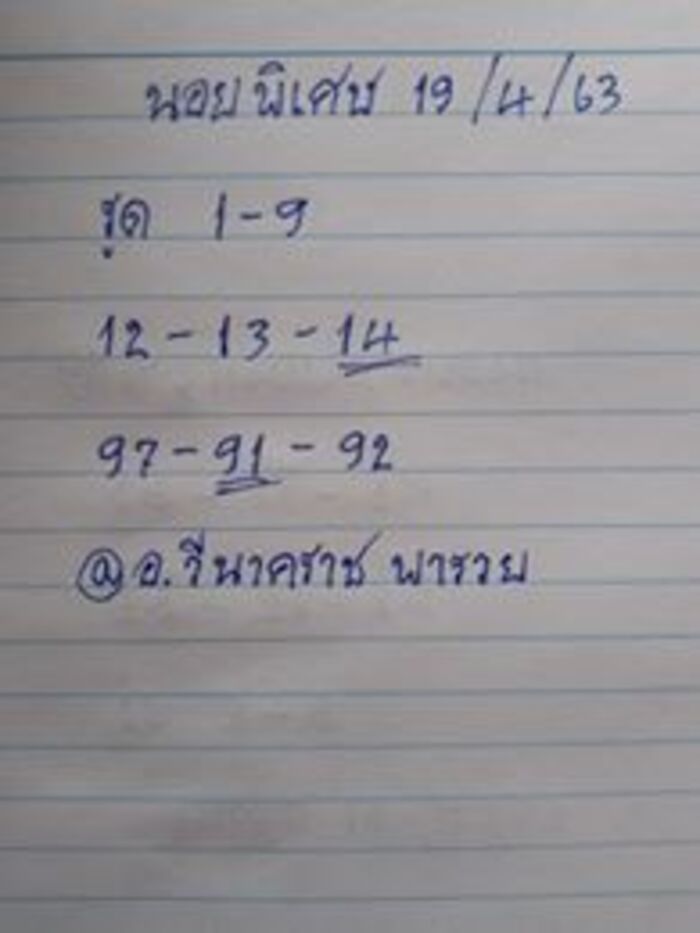 นอยพิเศษ 19/4/63
รูด 1-9
12-13-14
97-91-92
@อ.วีนาคราช พารวย